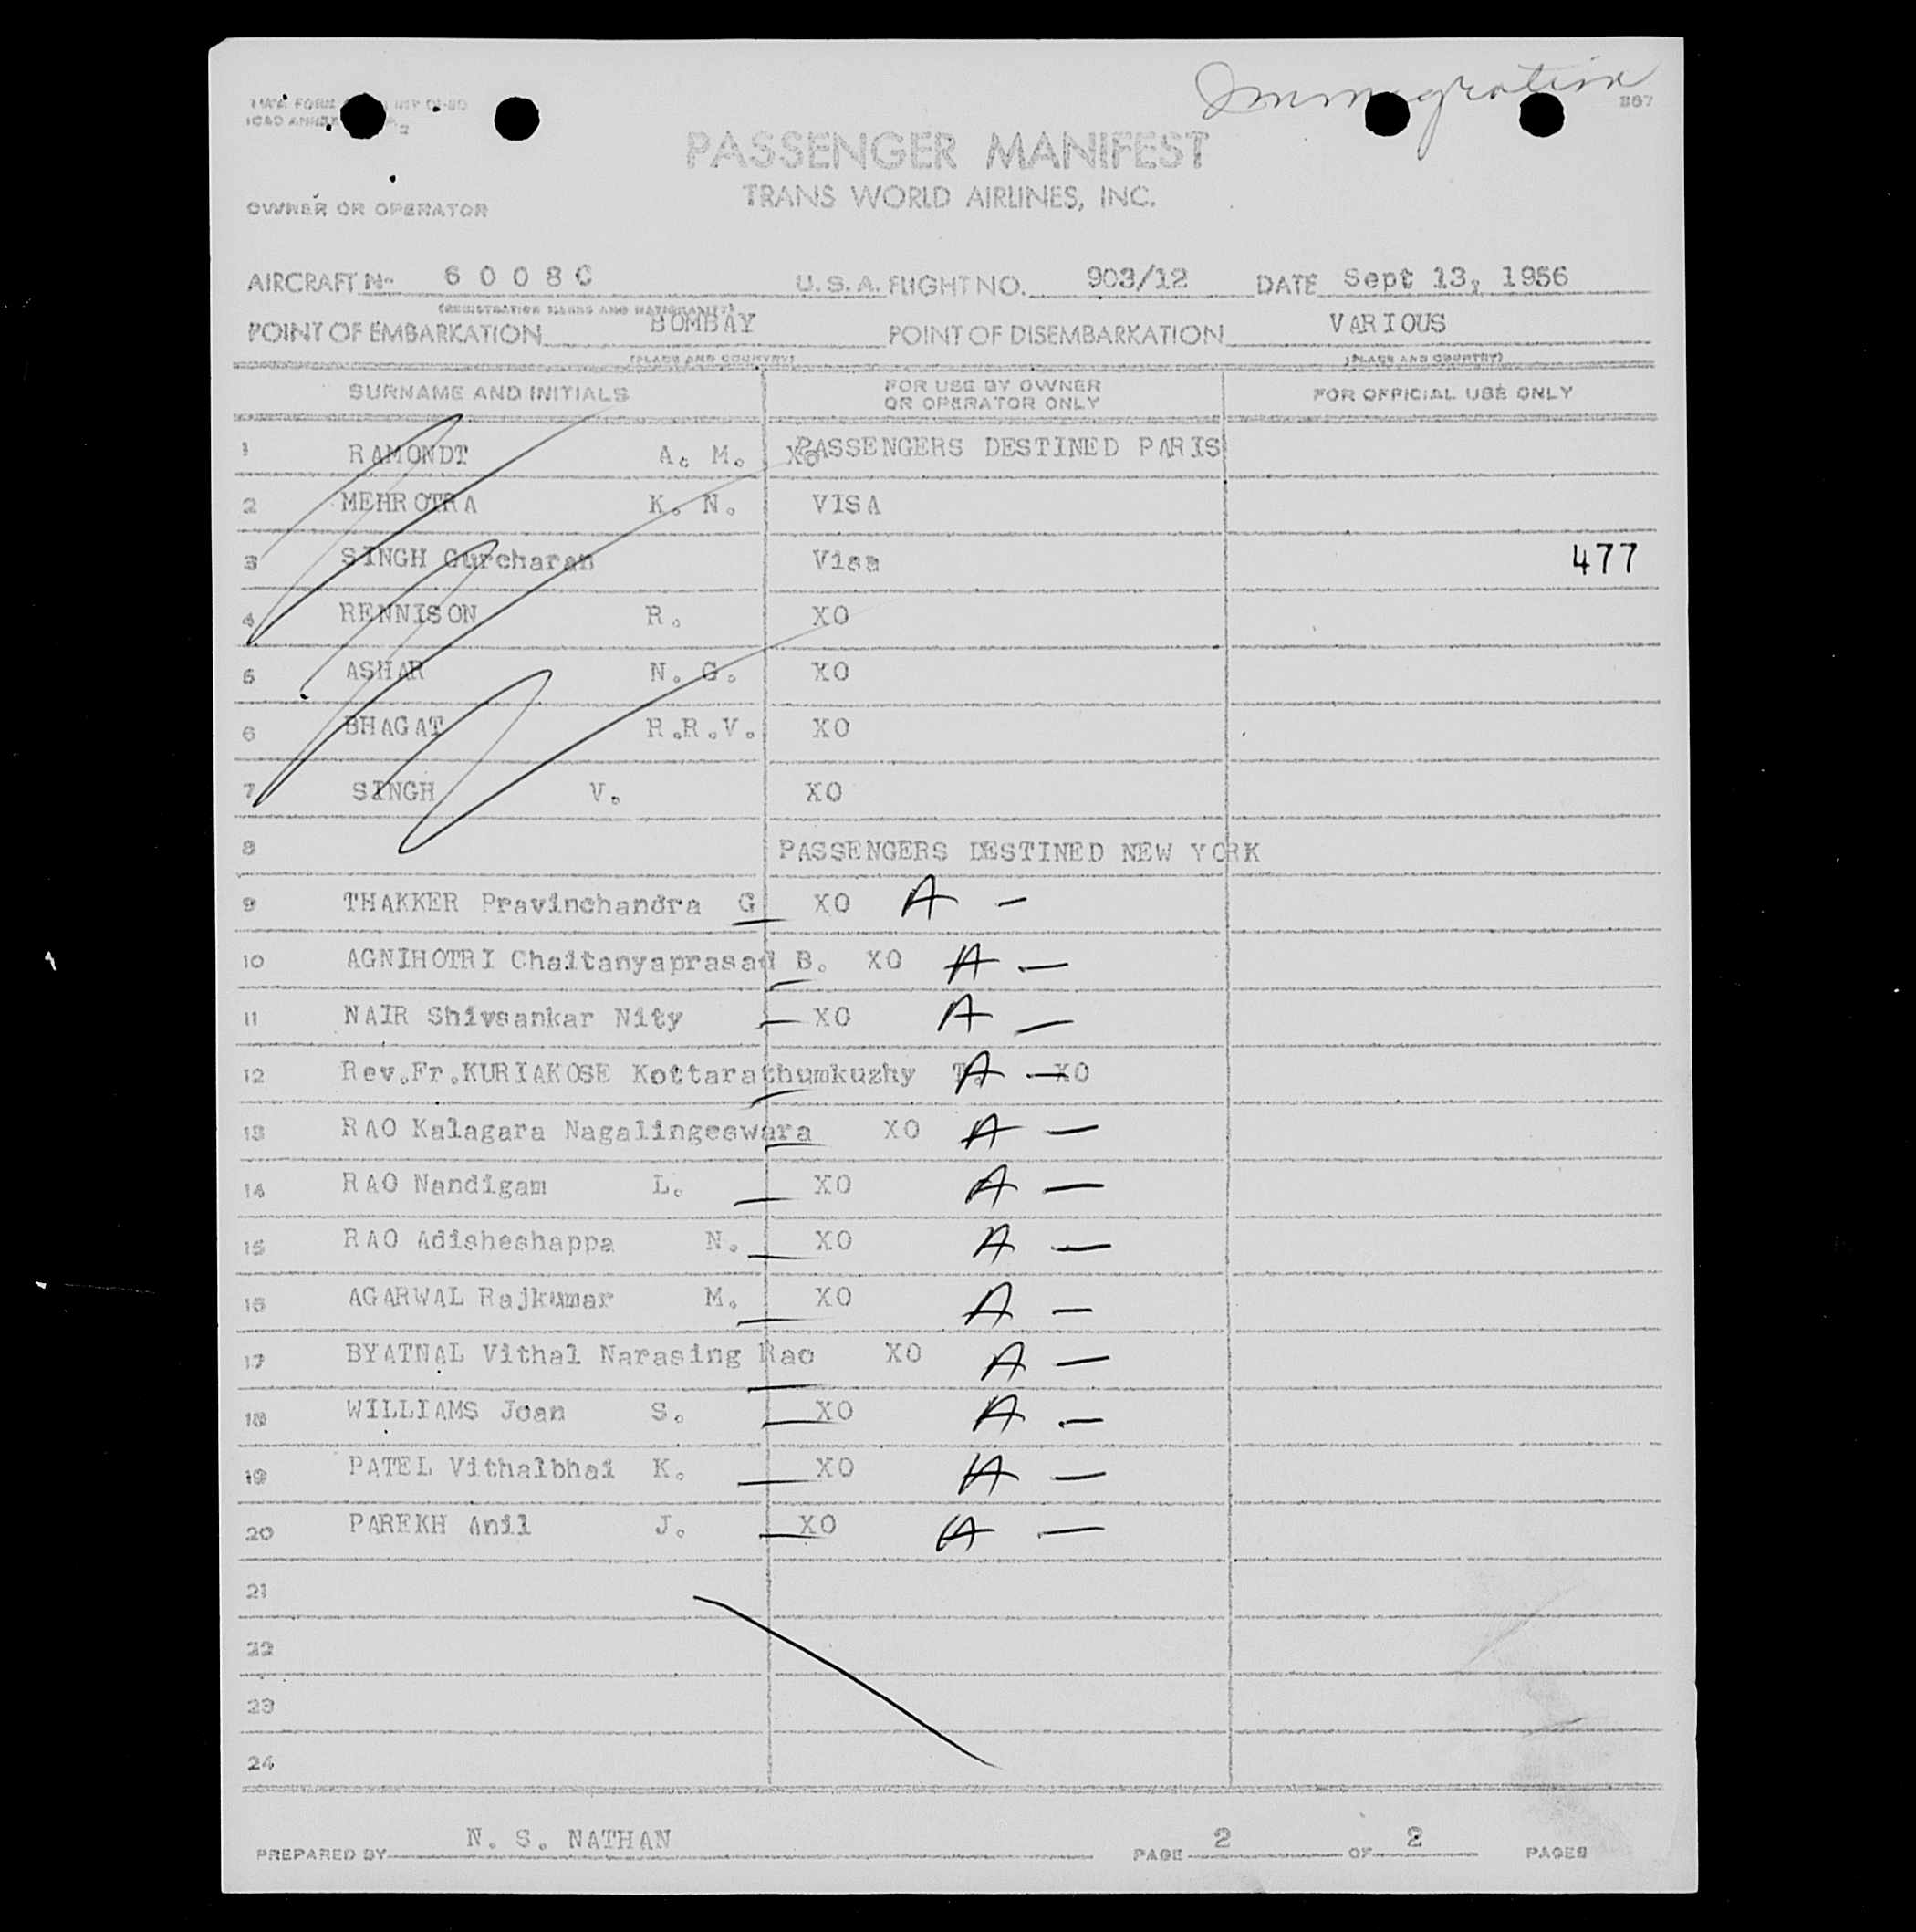 Immigration
867
PASSENGER MANIFEST
TRANS WORLD AIRLINES, INC.
OWNER OR OPERATOR
AIRCRAFT No 6 0 0 8 C U.S.A. FLIGHT NO. 903/12 DATE Sept 13, 1956
(REGISTRATION MARKS AND NATIONALITY)
POINT OF EMBARKATION BOMBAY POINT OF DISEMBARKATION VARIOUS
(PLACE AND COUNTRY) (PLACE AND COUNTRY)
SURNAME AND INITIALS FOR USE BY OWNER OR OPERATOR ONLY FOR OFFICIAL USE ONLY
1 RAMONDT A. M. XO PASSENGERS DESTINED PARIS
2 MEHROTRA K. N. VISA
3 SINGH Gurcharan Visa 477
4 RENNISON R. XO
5 ASHAR N. G. XO
6 BHAGAT R.R.V. XO
7 SINGH V. XO
8 PASSENGERS DESTINED NEW YORK
9 THAKKER Pravinchandra G XO A -
10 AGNIHOTRI Chaitanyaprasad B. XO A -
11 NAIR Shivsankar Nity XO A -
12 Rev.Fr.KURIAKOSE Kottarathumkuzhy T. A - XO
13 RAO Kalagara Nagalingeswara XO A -
14 RAO Nandigam L. XO A -
15 RAO Adisheshappa N. XO A -
16 AGARWAL Rajkumar M. XO A -
17 BYATNAL Vithal Narasing Rao XO A -
18 WILLIAMS Joan S. XO A -
19 PATEL Vithalbhai K. XO A -
20 PAREKH Anil J. XO A -
21
22
23
24
PREPARED BY N. S. NATHAN PAGE 2 OF 2 PAGES